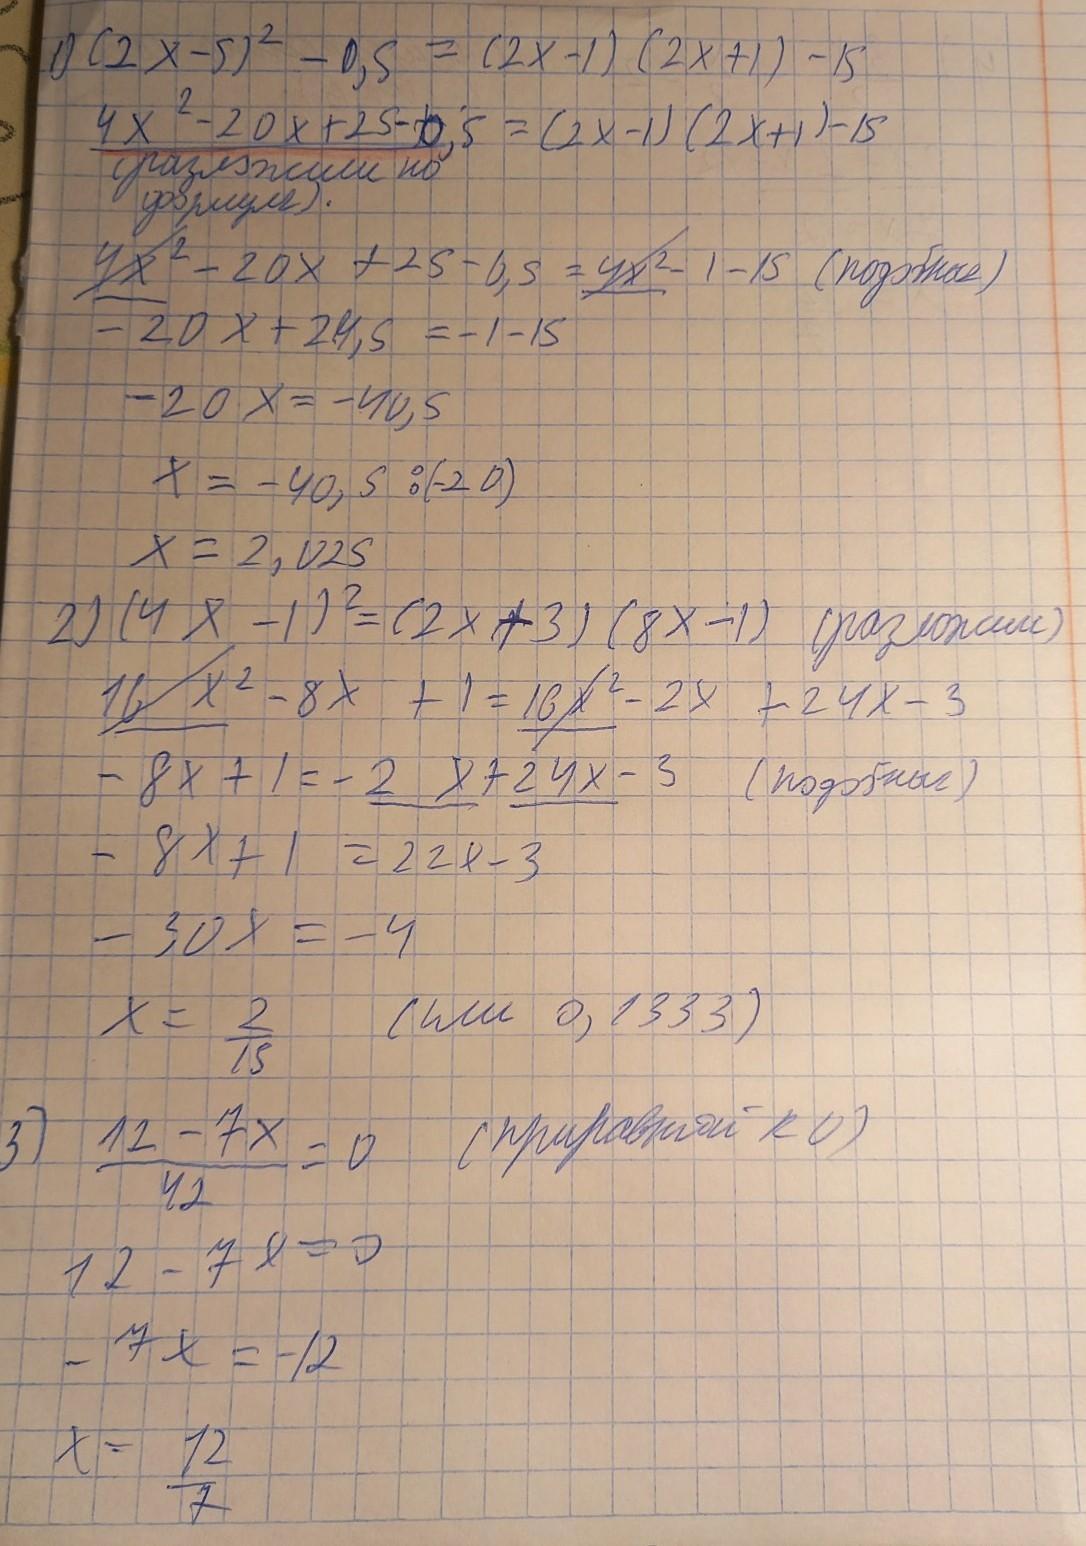 1) (2x-5)² - 0,5 = (2x-1)(2x+1) - 15
4x² - 20x + 25 - 0,5 = (2x-1)(2x+1) - 15
(разложили по
формуле).
4x² - 20x + 25 - 0,5 = 4x² - 1 - 15 (подобные)
- 20x + 24,5 = -1 - 15
- 20x = -40,5
x = -40,5 : (-20)
x = 2,025
2) (4x - 1)² = (2x + 3)(8x - 1) (разложили)
16x² - 8x + 1 = 16x² - 2x + 24x - 3
- 8x + 1 = - 2x + 24x - 3 (подобные)
- 8x + 1 = 22x - 3
- 30x = -4
x = 2/15 (или 0,1333)
3) 12 - 7x / 42 = 0 (приравняй к 0)
12 - 7x = 0
- 7x = -12
x = 12/7